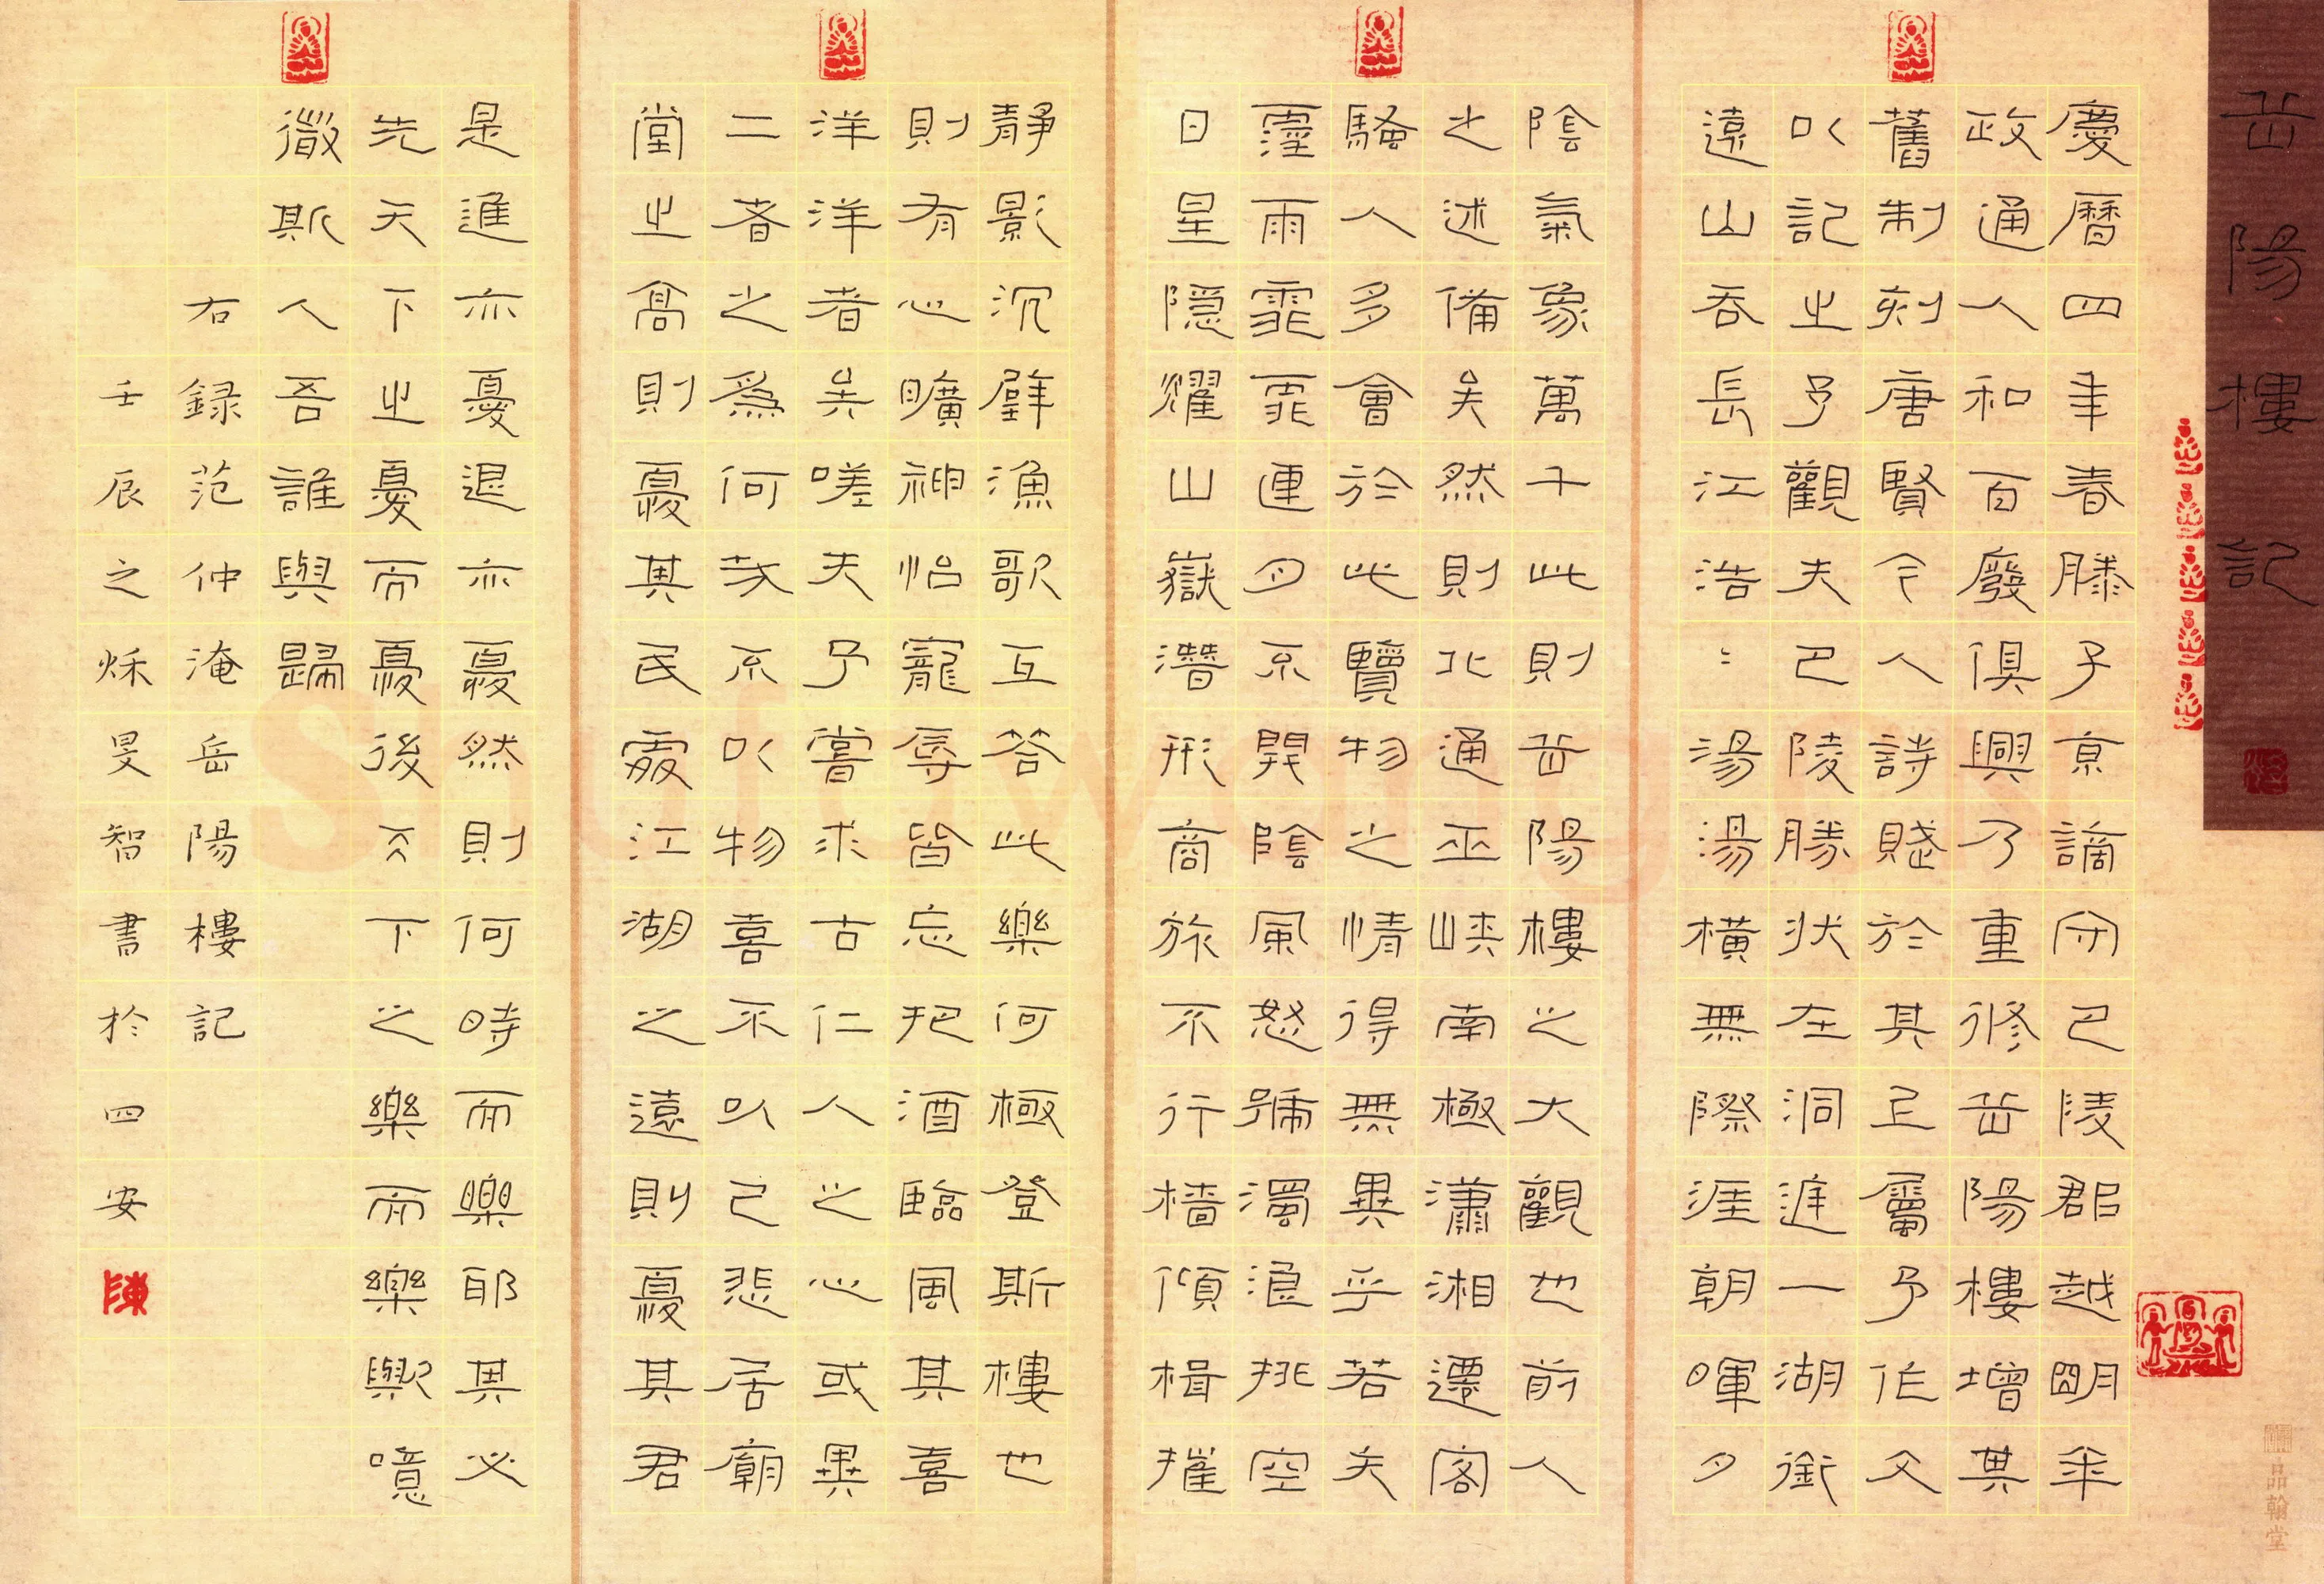 岳陽樓記
慶曆四年春滕子京謫守巴陵郡越明年
政通人和百廢俱興乃重修岳陽樓增其
舊制刻唐賢今人詩賦於其上屬予作文
以記之予觀夫巴陵勝狀在洞庭一湖銜
遠山吞長江浩〻湯湯橫無際涯朝暉夕
陰氣象萬千此則岳陽樓之大觀也前人
之述備矣然則北通巫峽南極瀟湘遷客
騷人多會於此覽物之情得無異乎若夫
霪雨霏霏連月不開陰風怒號濁浪排空
日星隱耀山嶽潛形商旅不行檣傾楫摧
靜影沉璧漁歌互答此樂何極登斯樓也
則有心曠神怡寵辱皆忘把酒臨風其喜
洋洋者矣嗟夫予嘗求古仁人之心或異
二者之為何哉不以物喜不以己悲居廟
堂之高則憂其民處江湖之遠則憂其君
是進亦憂退亦憂然則何時而樂耶其必
先天下之憂而憂後天下之樂而樂歟噫
微斯人吾誰與歸
右錄范仲淹岳陽樓記
壬辰之秌旻智書於四安
陳
品翰堂